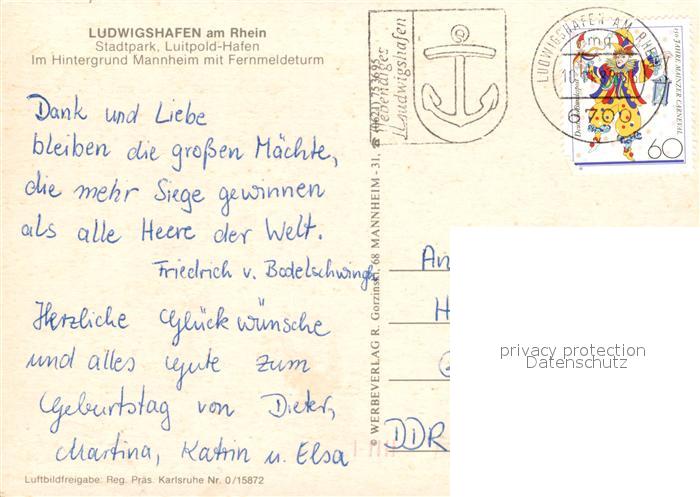 LUDWIGSHAFEN am Rhein
Stadtpark, Luitpold-Hafen
Im Hintergrund Mannheim mit Fernmeldeturm
Lebendiges
Ludwigshafen
LUDWIGSHAFEN AM RHEIN
6700
150 JAHRE MAINZER CARNEVAL
60
Dank und Liebe
bleiben die großen Mächte,
die mehr Siege gewinnen
als alle Heere der Welt.
Friedrich v. Bodelschwingh
Herzliche Glückwünsche
und alles Gute zum
Geburtstag von Dieter,
Martina, Katrin u. Elsa
© WERBEVERLAG R. Gorzinst, 68 MANNHEIM - 31, ☎ (0621) 753695
An
H
DDR
privacy protection
Datenschutz
Luftbildfreigabe: Reg. Präs. Karlsruhe Nr. 0/15872